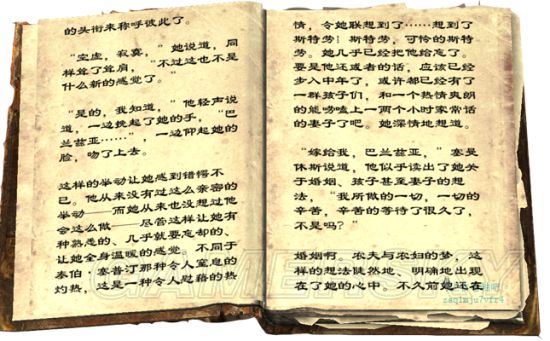 的头衔来称呼彼此了。
“空虚，寂寞，”她说道，同
样耸了耸肩，“不过这也不是
什么新的感觉了。”
“是的，我知道，”他轻声说
道，一边挽起了她的手，“巴
兰兹亚……”，一边仰起她的
脸，吻了上去。
这样的举动让她感到错愕不
已。他从来没有过这么亲密的
举动——而她从来也没想过他
会这么做——尽管这样让她有
种熟悉的、几乎就要忘却的、
让她全身温暖的感觉。不同于
泰伯·塞普汀那种令人窒息的
灼热，这是一种令人慰藉的热
情，令她联想到了……想到了
斯特劳！斯特劳，可怜的斯特
劳。她几乎已经把他给忘了。
要是他还或者的话，应该已经
步入中年了，或许都已经有了
一群孩子们，和一个热情爽朗
的能唠嗑上一两个小时家常话
的妻子了吧。她深情地想道。
“嫁给我，巴兰兹亚，”塞曼
休斯说道，他似乎读出了她关
于婚姻、孩子甚至妻子的想
法，“我所做的一切，一切的
辛苦，辛苦的等待了很久了，
不是吗？”
婚姻啊。农夫与农妇的梦，这
样的想法陡然地、明确地出现
在了她的心中。不久前她还在
GAMERSKY
zaq1mju7vfr4